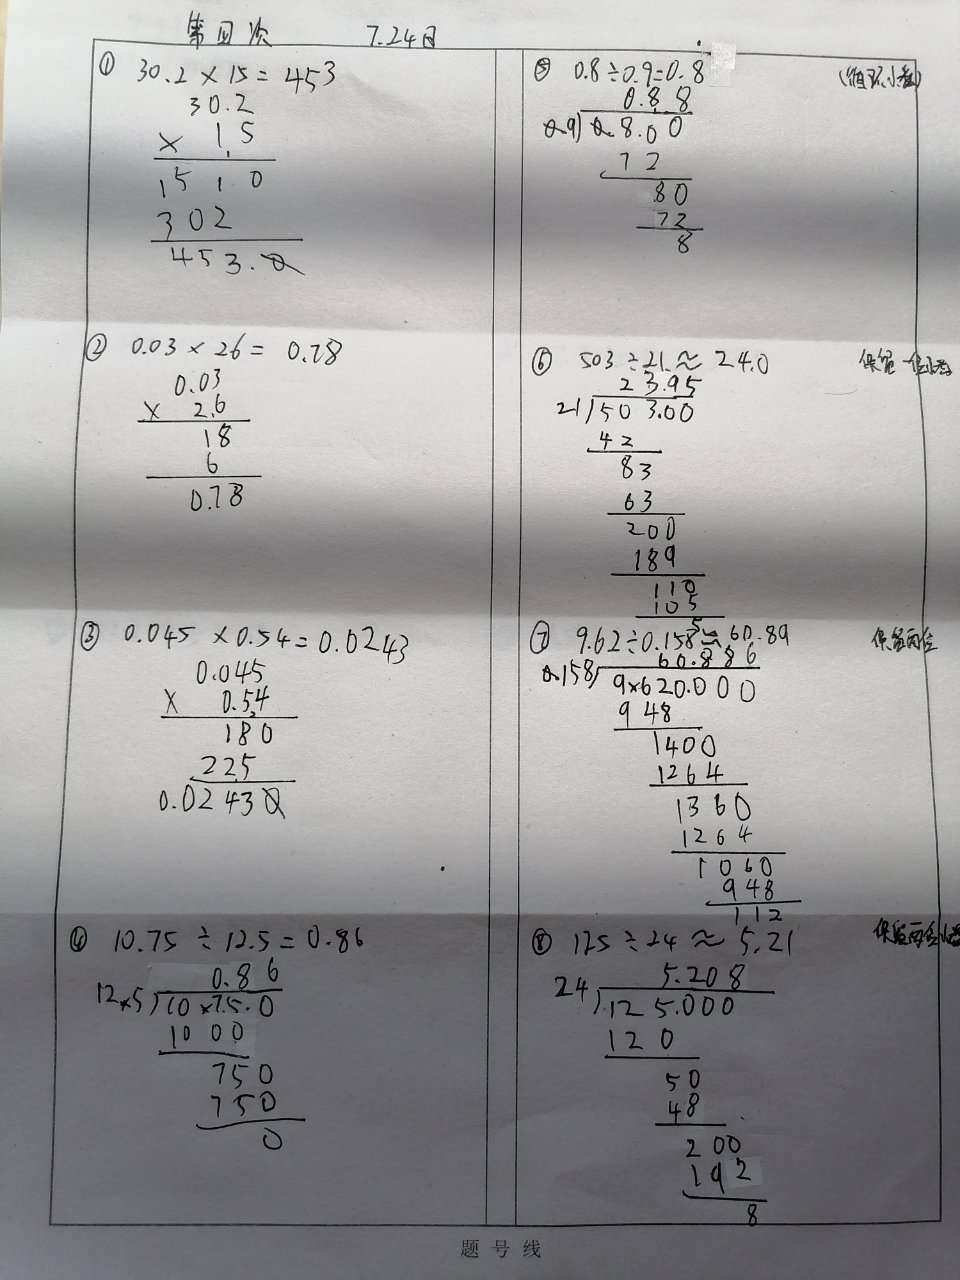 第四次 7.24日
① 30.2 × 15 = 453
30.2
× 1.5
1510
302
453.0
② 0.03 × 26 = 0.78
0.03
× 2.6
18
6
0.78
③ 0.045 × 0.54 = 0.0243
0.045
× 0.54
180
225
0.02430
④ 10.75 ÷ 12.5 = 0.86
0.86
12.5)10.75.0
1000
750
750
0
⑤ 0.8 ÷ 0.9 = 0.8̇ (循环小数)
0.88
0.9)0.8.00
72
80
72
8
⑥ 503 ÷ 21 ≈ 24.0 保留一位小数
23.95
21)503.00
42
83
63
200
189
110
105
5
⑦ 9.62 ÷ 0.158 ≈ 60.89 保留两位
60.886
0.158)9.620.000
948
1400
1264
1360
1264
1060
948
112
⑧ 125 ÷ 24 ≈ 5.21 保留两位小数
5.208
24)125.000
120
50
48
200
192
8
题号线